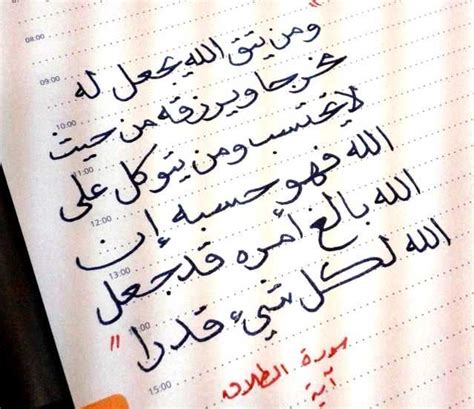 08:00
"
ومن يتق الله يجعل له
09:00
مخرجا ويرزقه من حيث
10:00
لا يحتسب ومن يتوكل على
11:00
الله فهو حسبه إن
12:00
الله بالغ أمره قد جعل
13:00
الله لكل شيء قدرا "
15:00
سورة الطلاق
آية